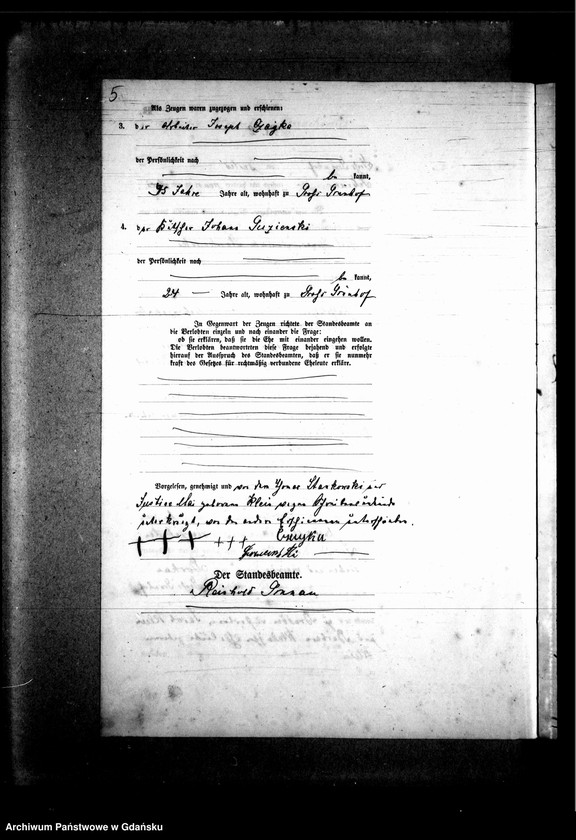 5
Als Zeugen waren zugezogen und erschienen:
3. der Arbeiter Joseph
der Persönlichkeit nach
be kannt,
35 Jahre Jahre alt, wohnhaft zu Groß Grünhof
4. der Johann
der Persönlichkeit nach
be kannt,
24 Jahre alt, wohnhaft zu Groß Grünhof
In Gegenwart der Zeugen richtete der Standesbeamte an
die Verlobten einzeln und nach einander die Frage:
ob sie erklären, daß sie die Ehe mit einander eingehen wollen.
Die Verlobten beantworteten diese Frage bejahend und erfolgte
hierauf der Ausspruch des Standesbeamten, daß er sie nunmehr
kraft des Gesetzes für rechtmäßig verbundene Eheleute erkläre.
Vorgelesen, genehmigt und von dem Stankowski und
Justine geborenen Klein wegen
unterkreuzt, von den andern unterschrieben.
+++ +++
Der Standesbeamte.
Reinhold
Archiwum Państwowe w Gdańsku